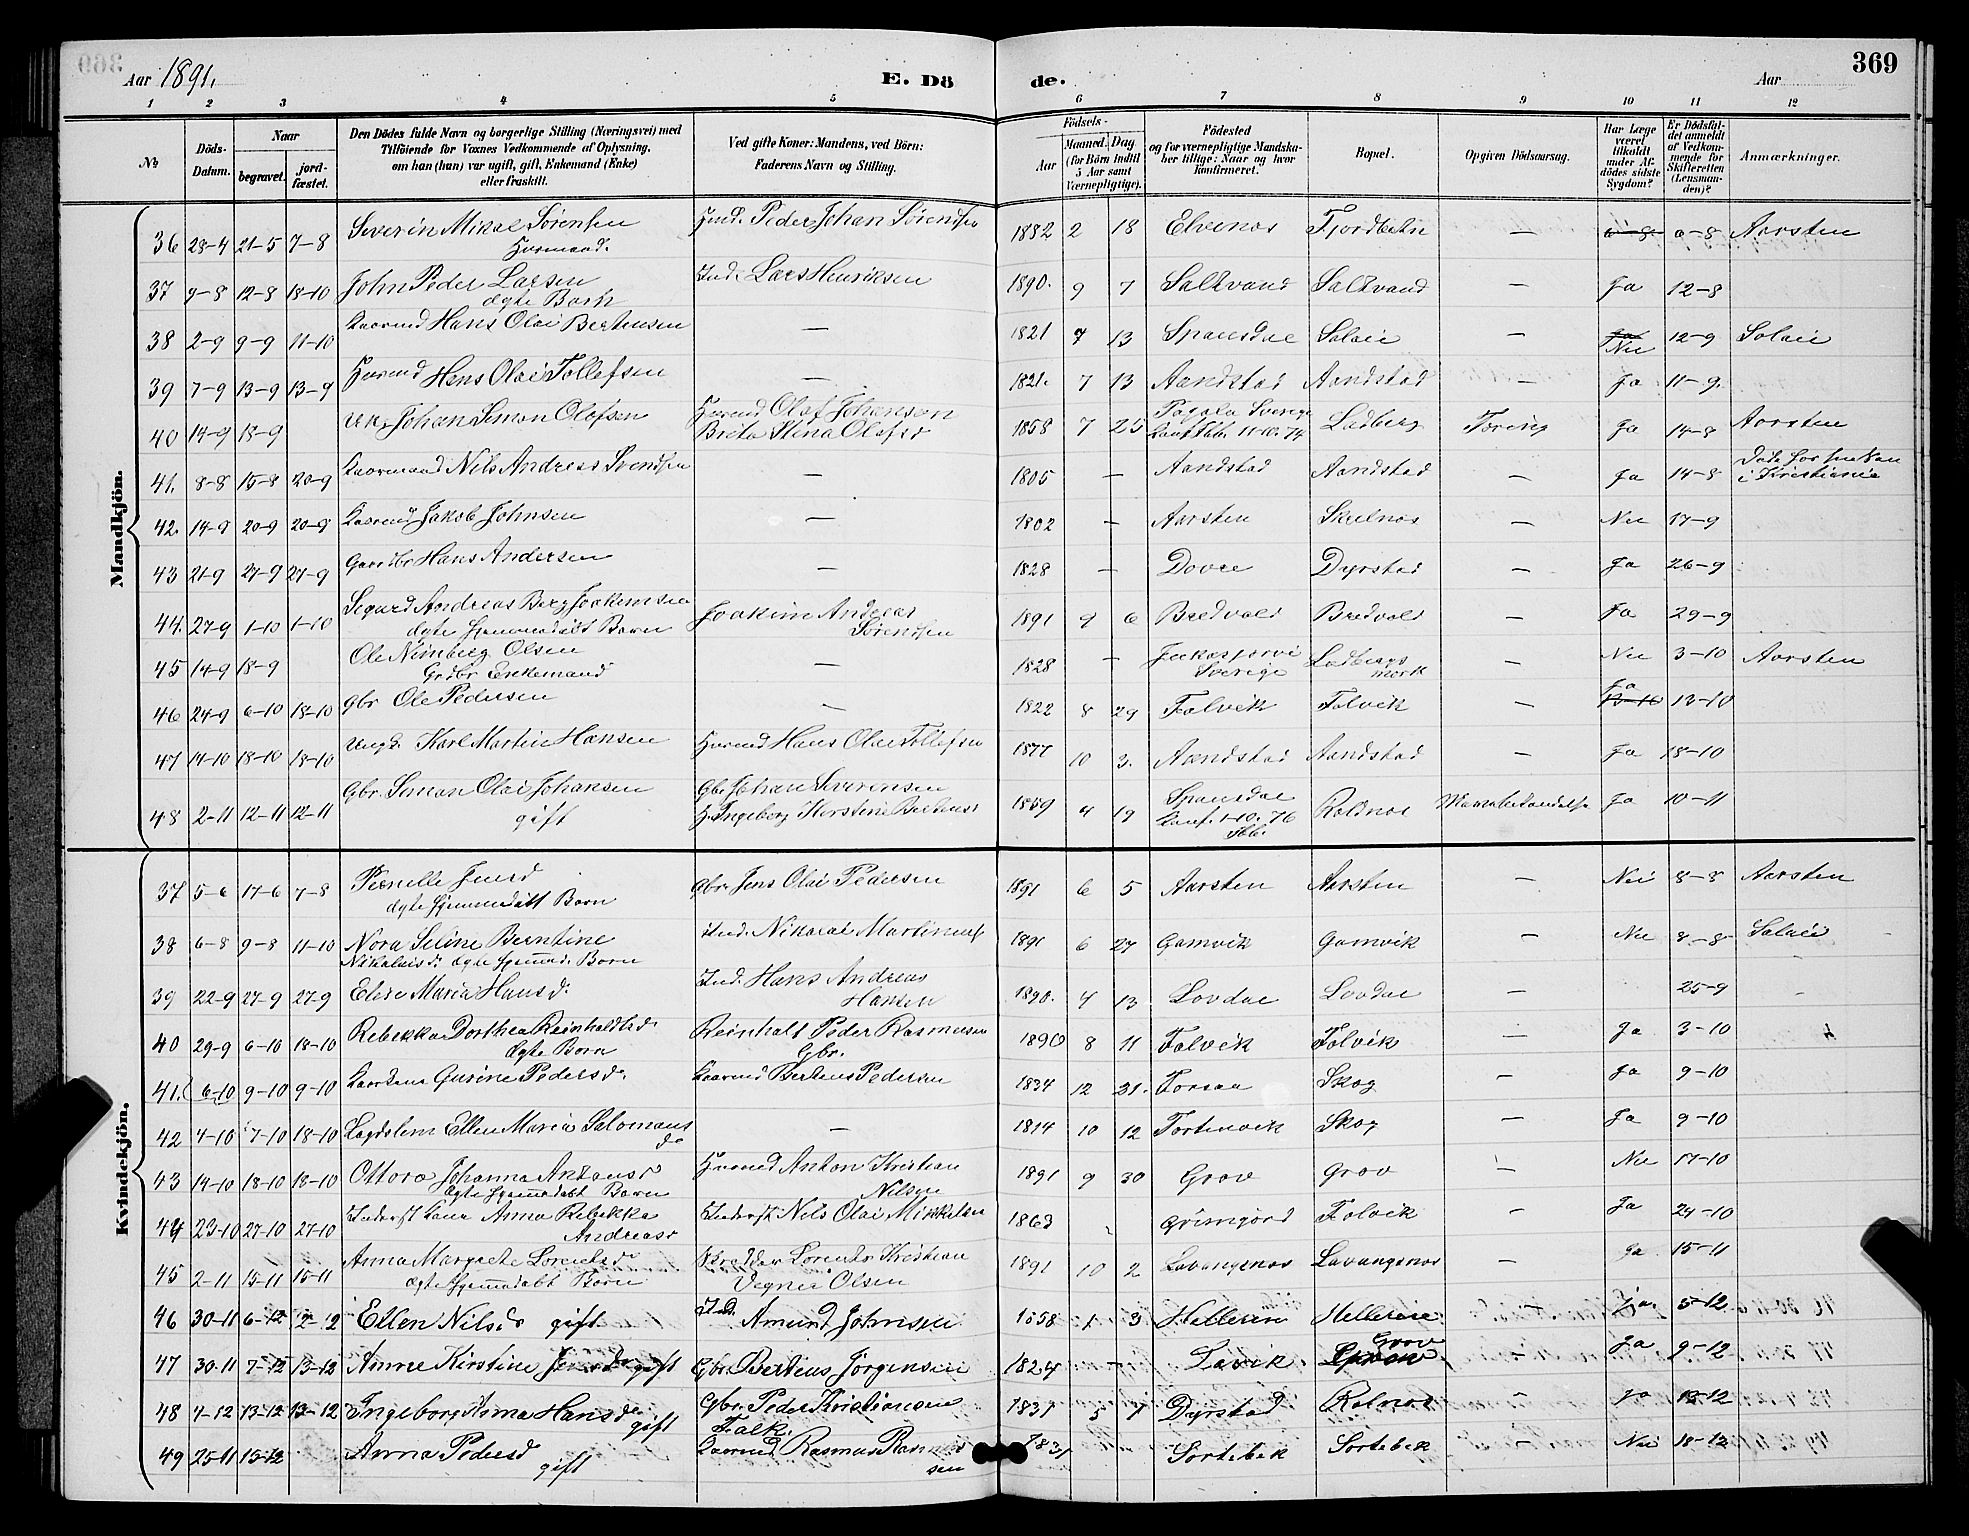 369
Aar 1891. E. Dö de. Aar
1 2 3 4 5 6 7 8 9 10 11 12
№ Döds-Datum. Naar begravet. jord-fæstet. Den Dödes fulde Navn og borgerlige Stilling (Næringsvei) med Tilföiende for Voxnes Vedkommende af Oplysning, om han (hun) var ugift, gift, Enkemand (Enke) eller fraskilt. Ved gifte Koner: Mandens, ved Börn: Faderens Navn og Stilling. Födsels- Aar Maaned. Dag (for Börn indtil 5 Aar samt Værnepligtige). Födested og for værnepligtige Mandskaber tillige: Naar og hvor konfirmeret. Bopæl. Opgiven Dödsaarsag. Har Læge været tilkaldt under Afdödes sidste Sygdom? Er Dödsfaldet anmeldt af Vedkommende for Skifteretten (Lensmanden)? Anmærkninger.
Mandkjön.
36 28-4 21-5 7-8 Severin Mikal Sörensen Husmand. Husmd. Peder Johan Sörensen 1882 2 18 Elvenos — 6-8 Aarsten
37 9-8 12-8 18-10 John Peder Larsen ægte Barn Ind. Lars Henriksen 1890. 9 7 Saltvand Saltvand — Ja 12-8
38 2-9 9-9 11-10 Kaarmd Hans Olai Berteusen — 1821 7 13 Spansdal — Nei 12-9
39 7-9 13-9 13-9 Husmd Hans Olai Tollefsen — 1821. 7 13 Aandstad Aandstad — Ja 11-9
40 14-9 18-9 Johan Simon Olafsen Husmd Olaf Johansen Brita Stina Olafsd 1858 7 25 Pagala Sverige 11-10.74 Ladberg Tæring Ja 14-8 Aarsten
41. 8-8 15-8 20-9 Kaarmand Nils Andreas Svendsen — 1805 — Aandstad Aandstad — Ja 14-8 i Kristiania
42. 14-9 20-9 20-9 Kaarmd Jakob Johnsen — 1802 — Aarsten Skelnos — Nei 17-9
43 21-9 27-9 27-9 Hans Andersen — 1828 — Dovre Dyrstad — Ja 26-9
44. 27-9 1-10 1-10 Sigurd Andreas Berg Joakimsen ægte hjemmedöbt Barn Joakim Andreas Sörensen 1891 9 6 Bredvold Bredvold — Ja 29-9
45 14-9 18-9 Ole Nimberg Olsen Enkemand — 1828 — Sverige Ladbergs mark Nei 3-10 Aarsten
46 24-9 6-10 18-10 Gbr Ole Pedersen — 1822 8 29 Folvik Folvik — Ja 13-10
47 14-10 18-10 18-10 Karl Martin Hansen Husmd Hans Olai Tollefsen 1877 10 3. Aandstad Aandstad — Ja 18-10
48 2-11 12-11 12-11 Gbr. Simon Olai Johansen gift Gbr Johan Severinsen Ingeborg Kirstine 1859 4 19 Spansdal Konf. 1-10.76 Rolnos Ja 10-11
Kvindekjön.
37 5-6 17-6 7-8 Pernelle Jensd ægte hjemmedöbt Barn Gbr. Jens Olai Pedersen 1891 6 5 Aarsten Aarsten — Nei 8-8 Aarsten
38 6-8 9-8 11-10 Nora Seline Berntine Nikolaisd. ægte hjemmed. Barn Ind. Nikolai Martinus 1891 6 27 Gamvik Gamvik — Nei 8-8
39 22-9 27-9 27-9 Elise Maria Hansd. Ind. Hans Andreas Hansen 1890. 4 13 Lovdal Lovdal — 25-9
40 29-9 6-10 18-10 Rebekka Dorthea Reinholdtsd ægte Barn Reinholt Peder Rasmusen Gbr. 1890 8 11 Folvik Folvik — Ja 3-10
41. 6-10 9-10 9-10 Gurine Pedersd. Kaarmd Berteus Pedersen 1834 12 31. Forsaa Skog — Ja 9-10
42 4-10 7-10 18-10 Lægdslem Ellen Maria Salomonsd — 1814 10 12 Skog — Ja 9-10
43 14-10 18-10 18-10 Ottora Johanna Antonsd ægte hjemmedöbt Barn Husmd Anton Kristian Nilsen 1891 9 30 Grov Grov — Nei 17-10
44 23-10 27-10 27-10 Anna Rebekka Andreasd Nils Olai Mikkelsen 1863 Grimjord Folvik — Ja 24-10
45 2-11 15-11 15-11 Anna Margrete Lorentsd ægte hjemmedöbt Barn Lorents Kristian Olsen 1891 10 2 Lavangsnos Lavangsnos — Ja 15-11
46 30-11 6-12 Ellen Nilsd gift Ind. Amund Johnsen 1858 1 3 Helleren — Ja 5-12
47 30-11 7-12 13-12 Anne Kirstine Jensd gift Gbr. Berteus Jörgensen 1824 — Lavik. Grov — Ja 9-12
48 4-12 13-12 13-12 Ingeborg Anna Hansd gift Gbr Peder Kristiansen Falk. 1831 Dyrstad Rolnos — Ja 13-12
49 25-11 15-12 Anna Pedersd gift Kaarmd Rasmus Rasmussen — Sortebek Sortebek — Nei 18-12